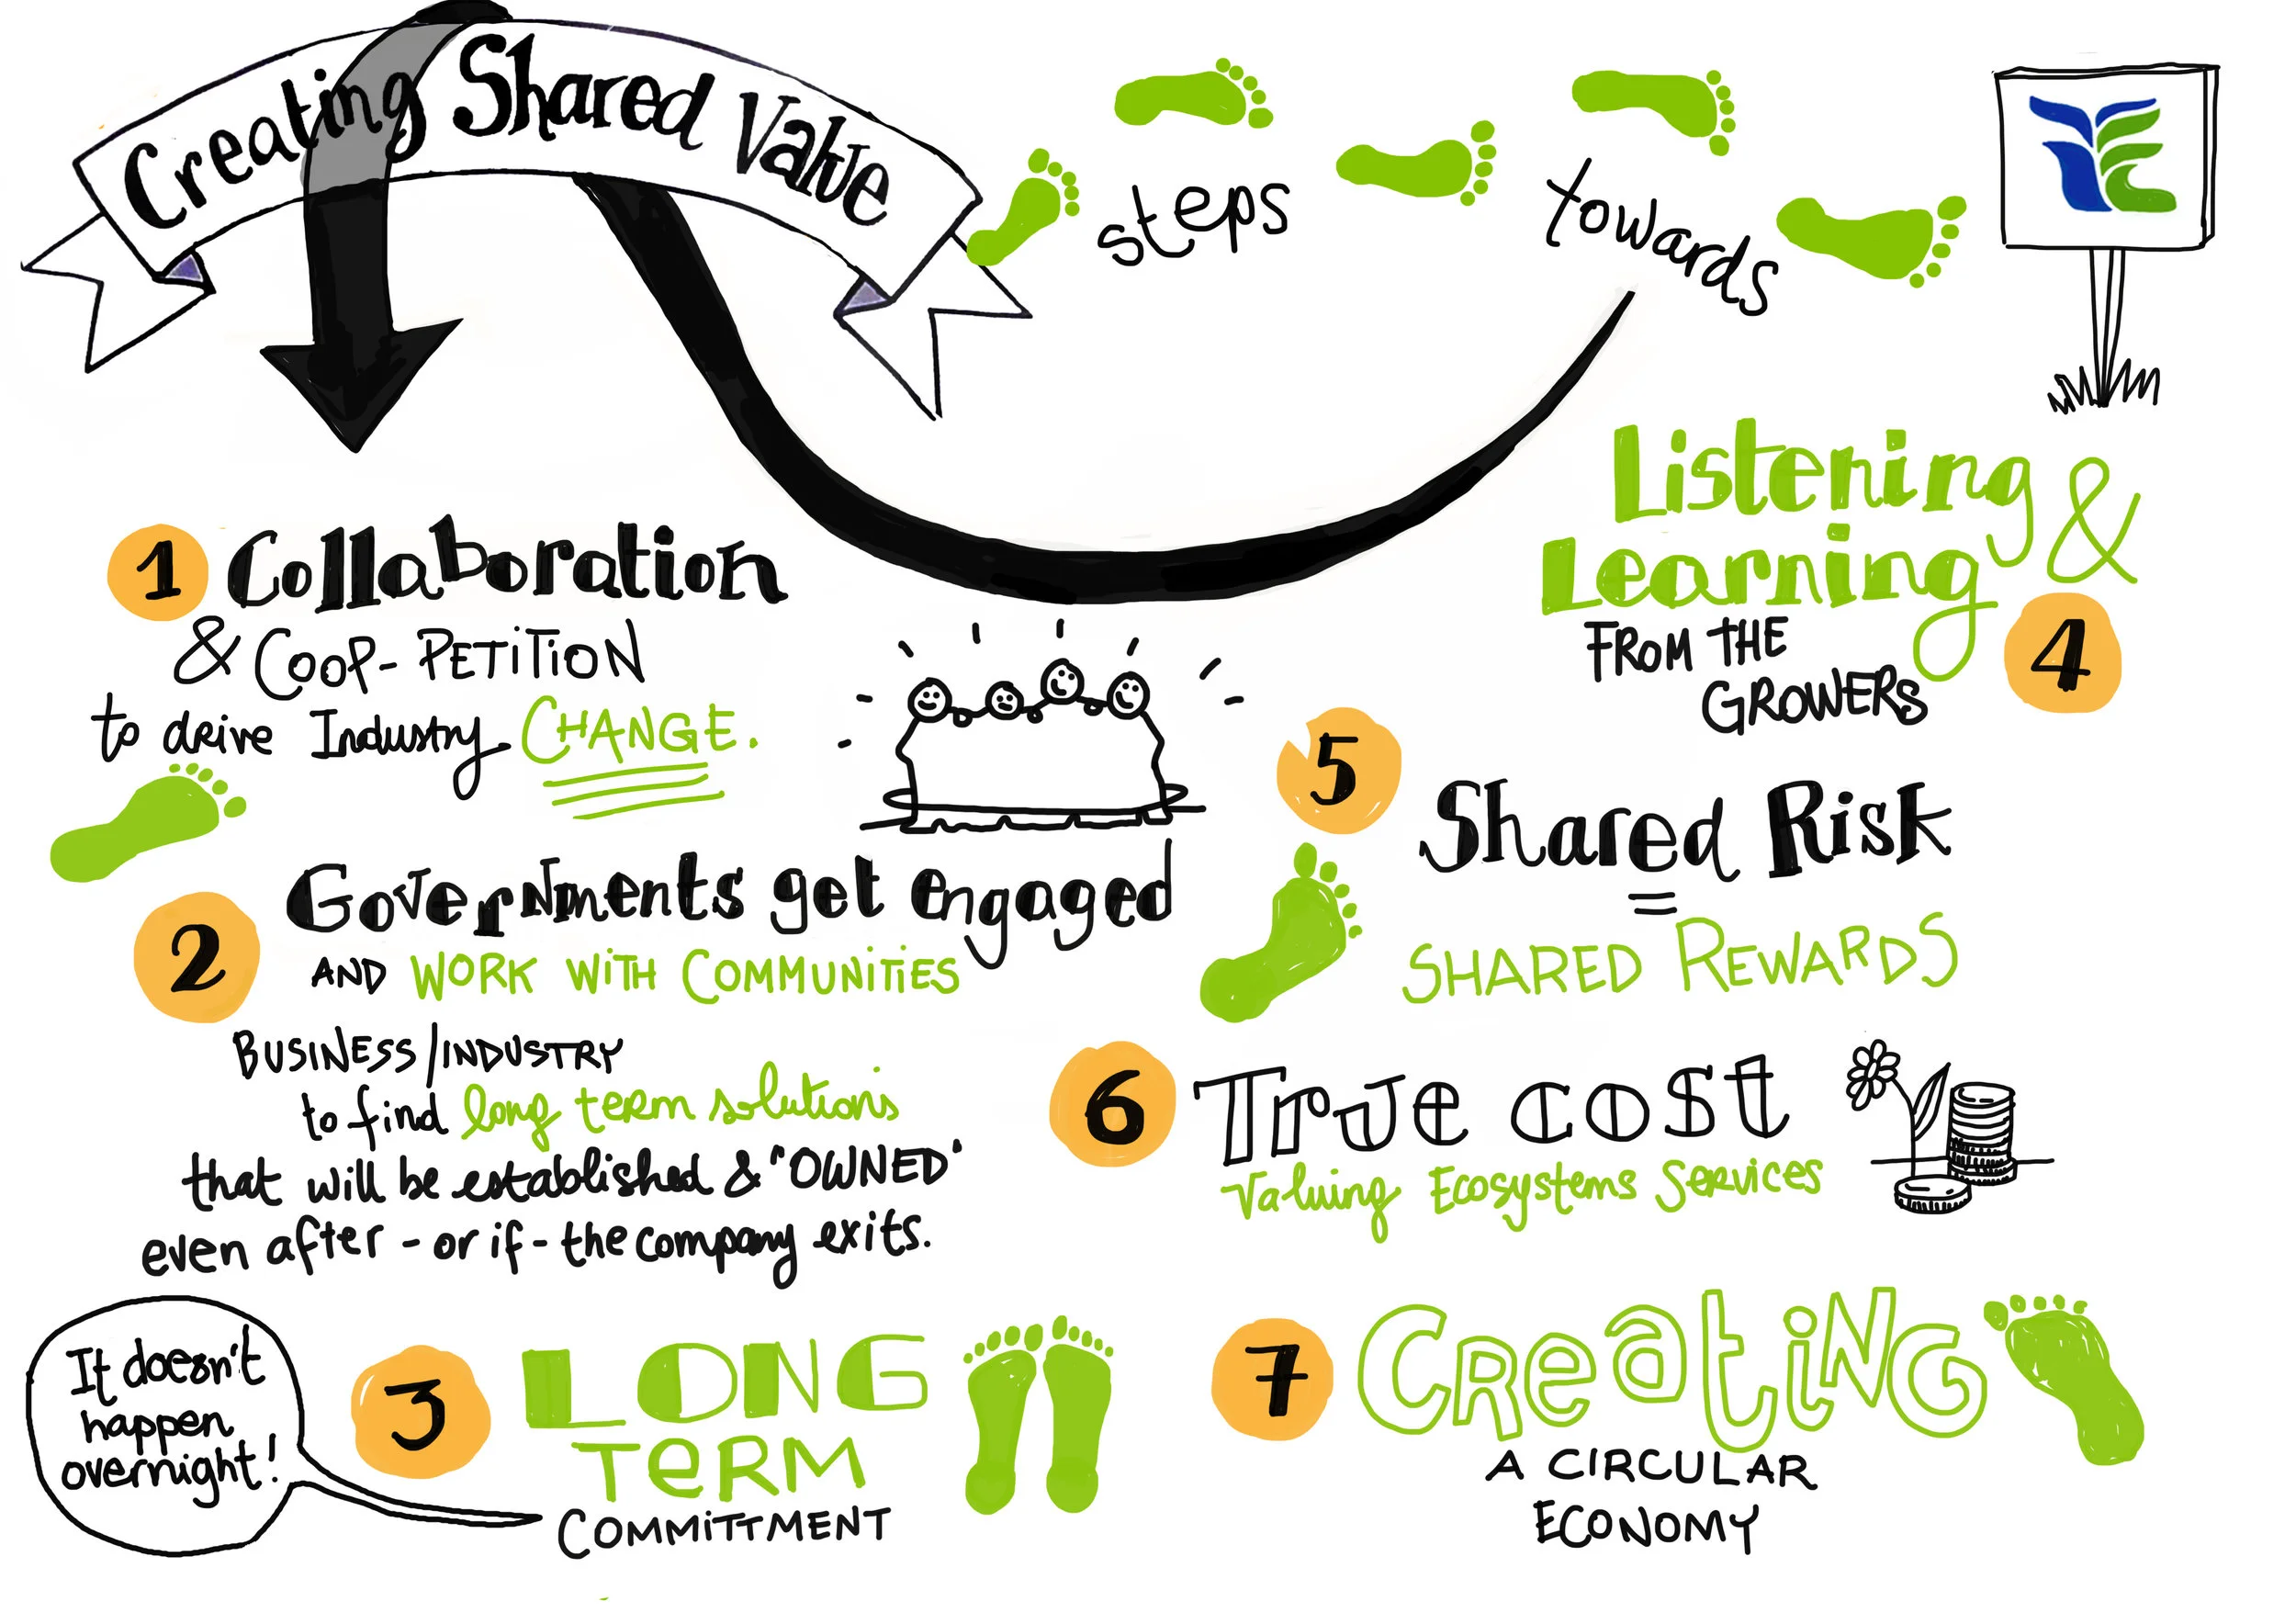 Creating Shared Value
steps
towards
1 Collaboration
& COOP-PETITION
to drive Industry CHANGE.
2 Governments get engaged
AND WORK WITH COMMUNITIES
BUSINESS/INDUSTRY
to find long term solutions
that will be established & "OWNED"
even after - or if - the company exits.
It doesn't
happen
overnight!
3 LONG
TERM
COMMITTMENT
Listening &
Learning
FROM THE
GROWERS
4
5
Shared Risk
=
SHARED REWARDS
6 True cost
Valuing Ecosystems Services
7 Creating
A CIRCULAR
ECONOMY